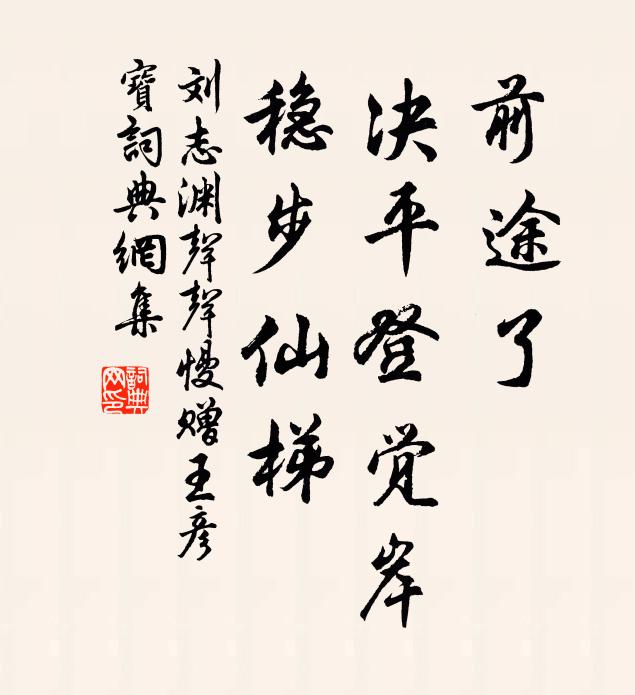 前途了
决平登觉岸
稳步仙梯
刘志渊聲聲慢赠王彦
寶詞典網集
詞典
网印